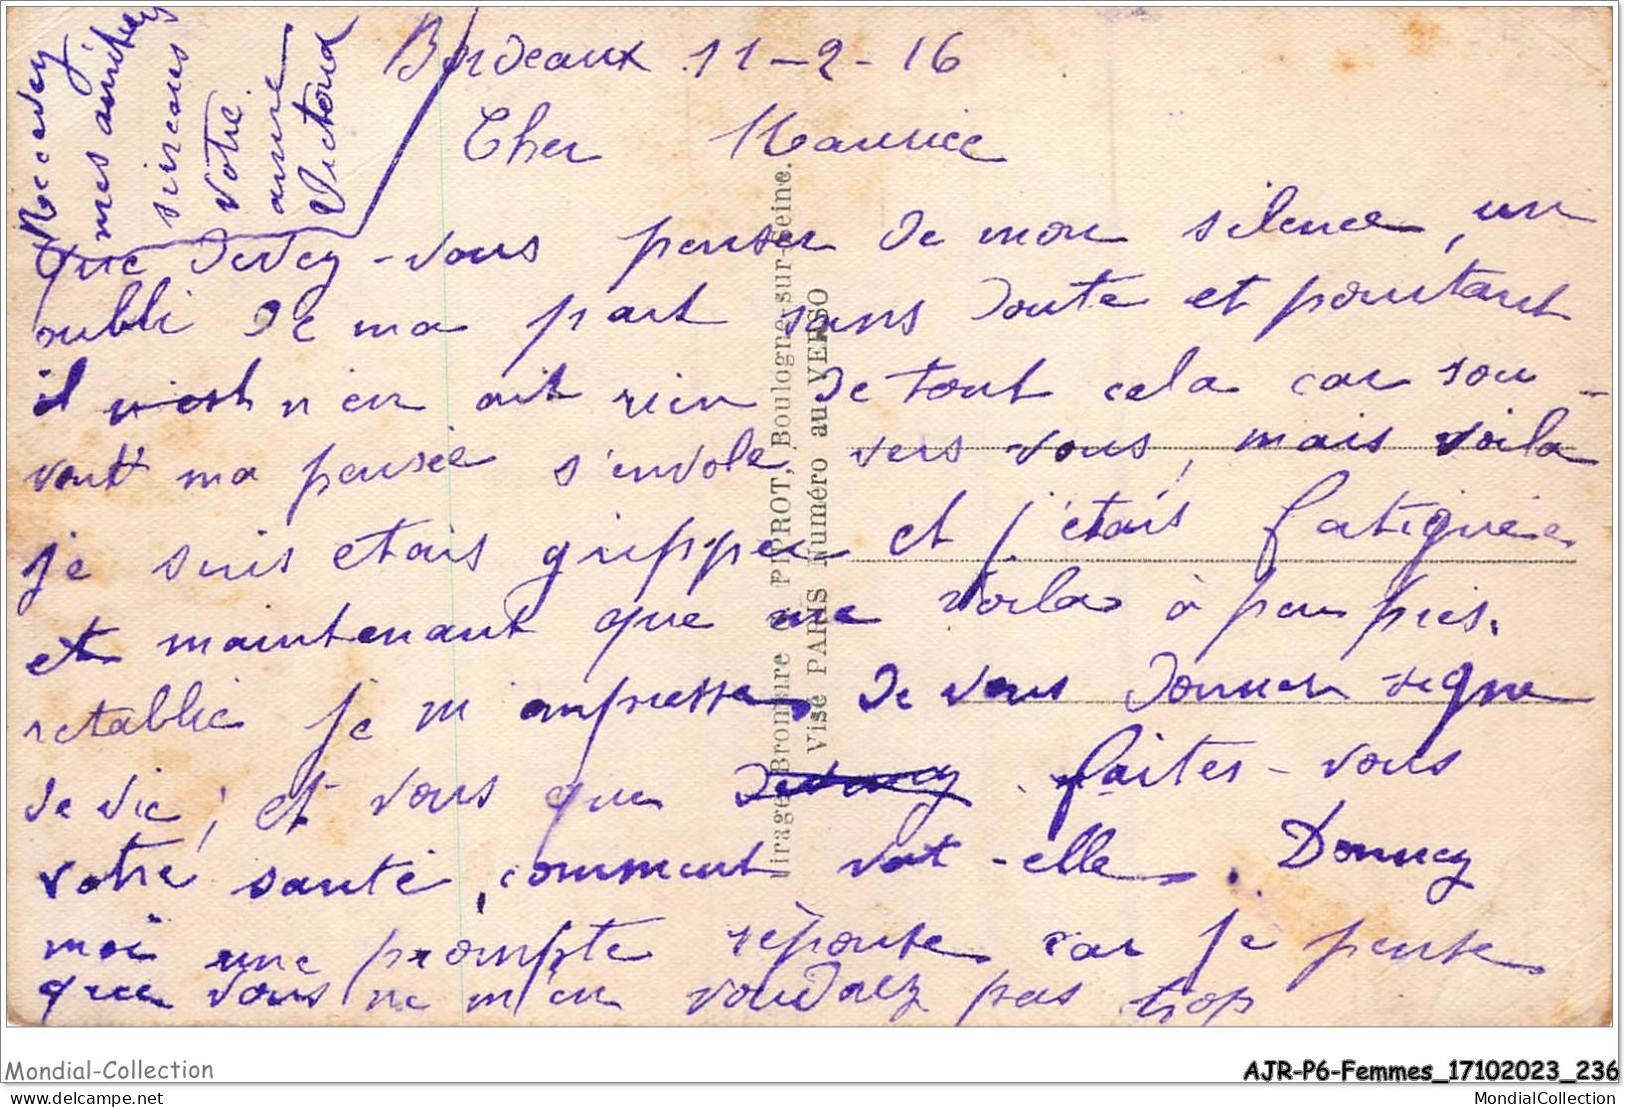 Bordeaux 11-2-16
Cher Maurice
Que devez-vous penser de mon silence, un
oubli de ma part sans doute et pourtant
il n'est n'en ait rien de tout cela car sou-
vent ma pensée s'envole vers vous, mais voila
je suis etais grippée et j'étais fatiguée
et maintenant que me voila à peu près.
retablie je m'empresse de vous donner signe
de vie, et vous que devenez faites-vous
votre santé, comment vat-elle. Donnez
moi une prompte réponse car je pense
que vous ne m'en voudrez pas trop
Recevez
mes amitiés
sincères
Votre
amie
Victoria
Mirage Bromure C PIPROT, Boulogne-sur-Seine.
Visé PARIS Numéro au VERSO
Mondial-Collection
AJR-P6-Femmes_17102023_236
delcampe.net
MondialCollection